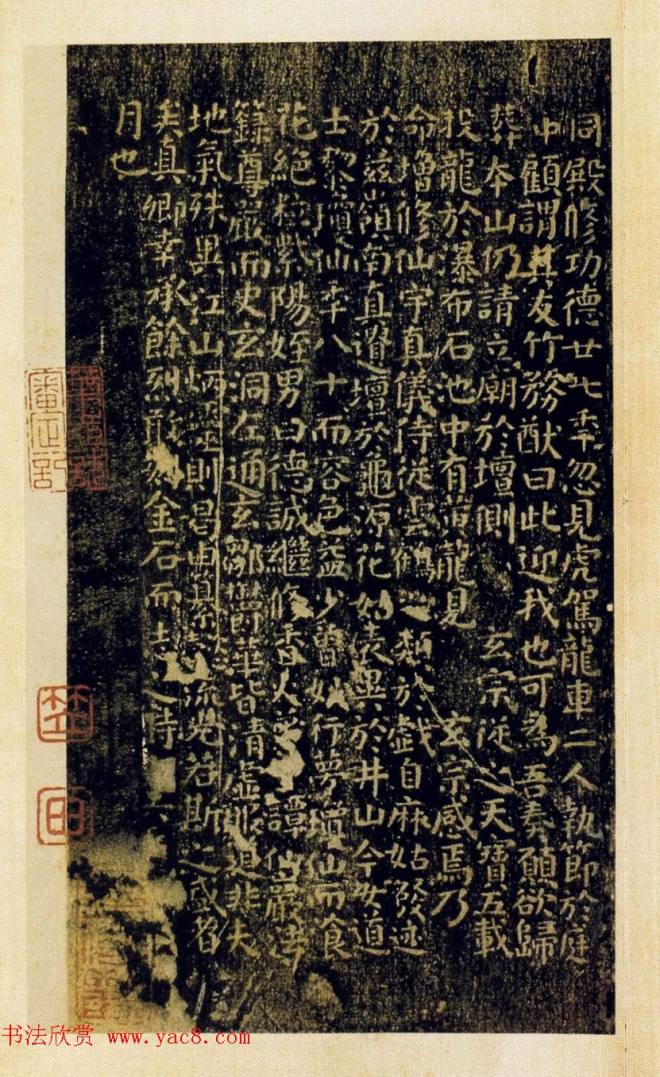 同殿修功德廿七年忽見虎駕龍車二人執節於庭
中顧謂其友竹務猷曰此迎我也可為吾奏願欲歸
葬本山仍請立廟於壇側 玄宗從之天寶五載
投龍於瀑布石池中有黃龍見 玄宗感焉乃
命增修仙宇真儀侍從雲鶴之類於戲自麻姑發迹
於茲嶺南真遺壇於龜源花姑表異於井山今女道
士黎瓊仙年八十而容色益少曾妙行夢瓊仙而餐
花絕粒紫陽姪男曰德誠繼修香火 譚仙巖法
籙尊嚴而史玄洞左通玄鄒鬱華皆清虛服道非夫
地氣殊異江山炳 則曷由纂 流光若斯之盛者
矣真卿幸承餘烈敢刻金石而志之時 六
月也
書法欣賞 www.yac8.com